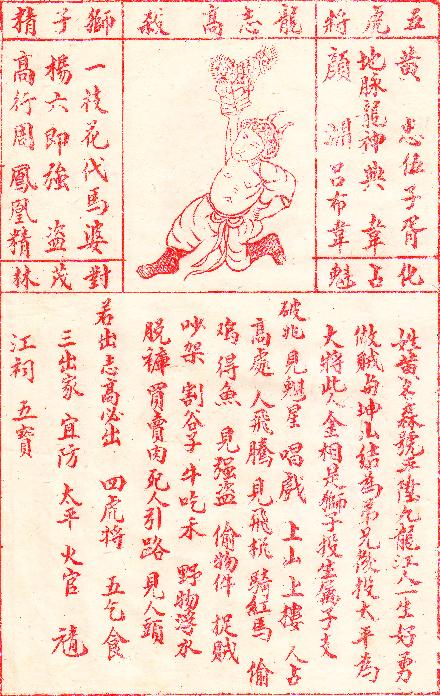 五虎將
龍志高 殺
獅子精
黃忠 伍子胥
地脉龍神 興 韋
顏淵 呂布 韋
化占魁
一枝花 代馬婆
楊六郎 強盜
高行周 鳳凰精
對茂林
姓黃名森號五陞乞龍江人一生好勇
做賊与坤山結為弟兄後投太平為
大將此人金相是獅子投生屬子支
破兆見魁星 唱戲 上山上樓 人占
高處 人飛騰 見飛 騎紅馬 偷
鸡得魚 見强盜 偷物件 捉賊
吵架 割谷子 牛吃禾 野物浮水
脱褲 買賣肉 死人引路 見人頭
若出志高必出 四虎將 五乞食
三出家 宜防 太平 火官
江祠 五寶